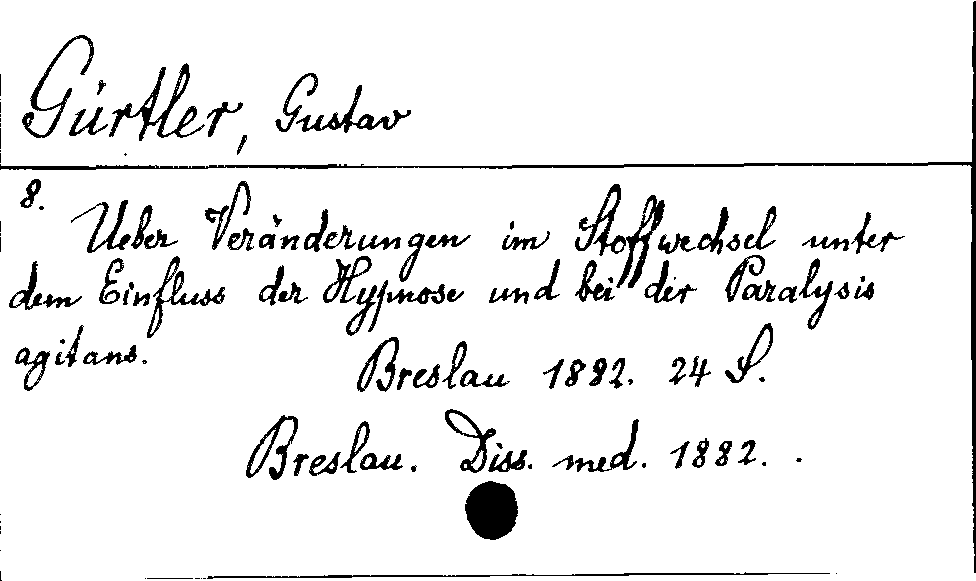 Gürtler, Gustav
8.
Ueber Veränderungen im Stoffwechsel unter
dem Einfluss der Hypnose und bei der Paralysis
agitans.
Breslau 1882. 24 S.
Breslau. Diss. med. 1882.